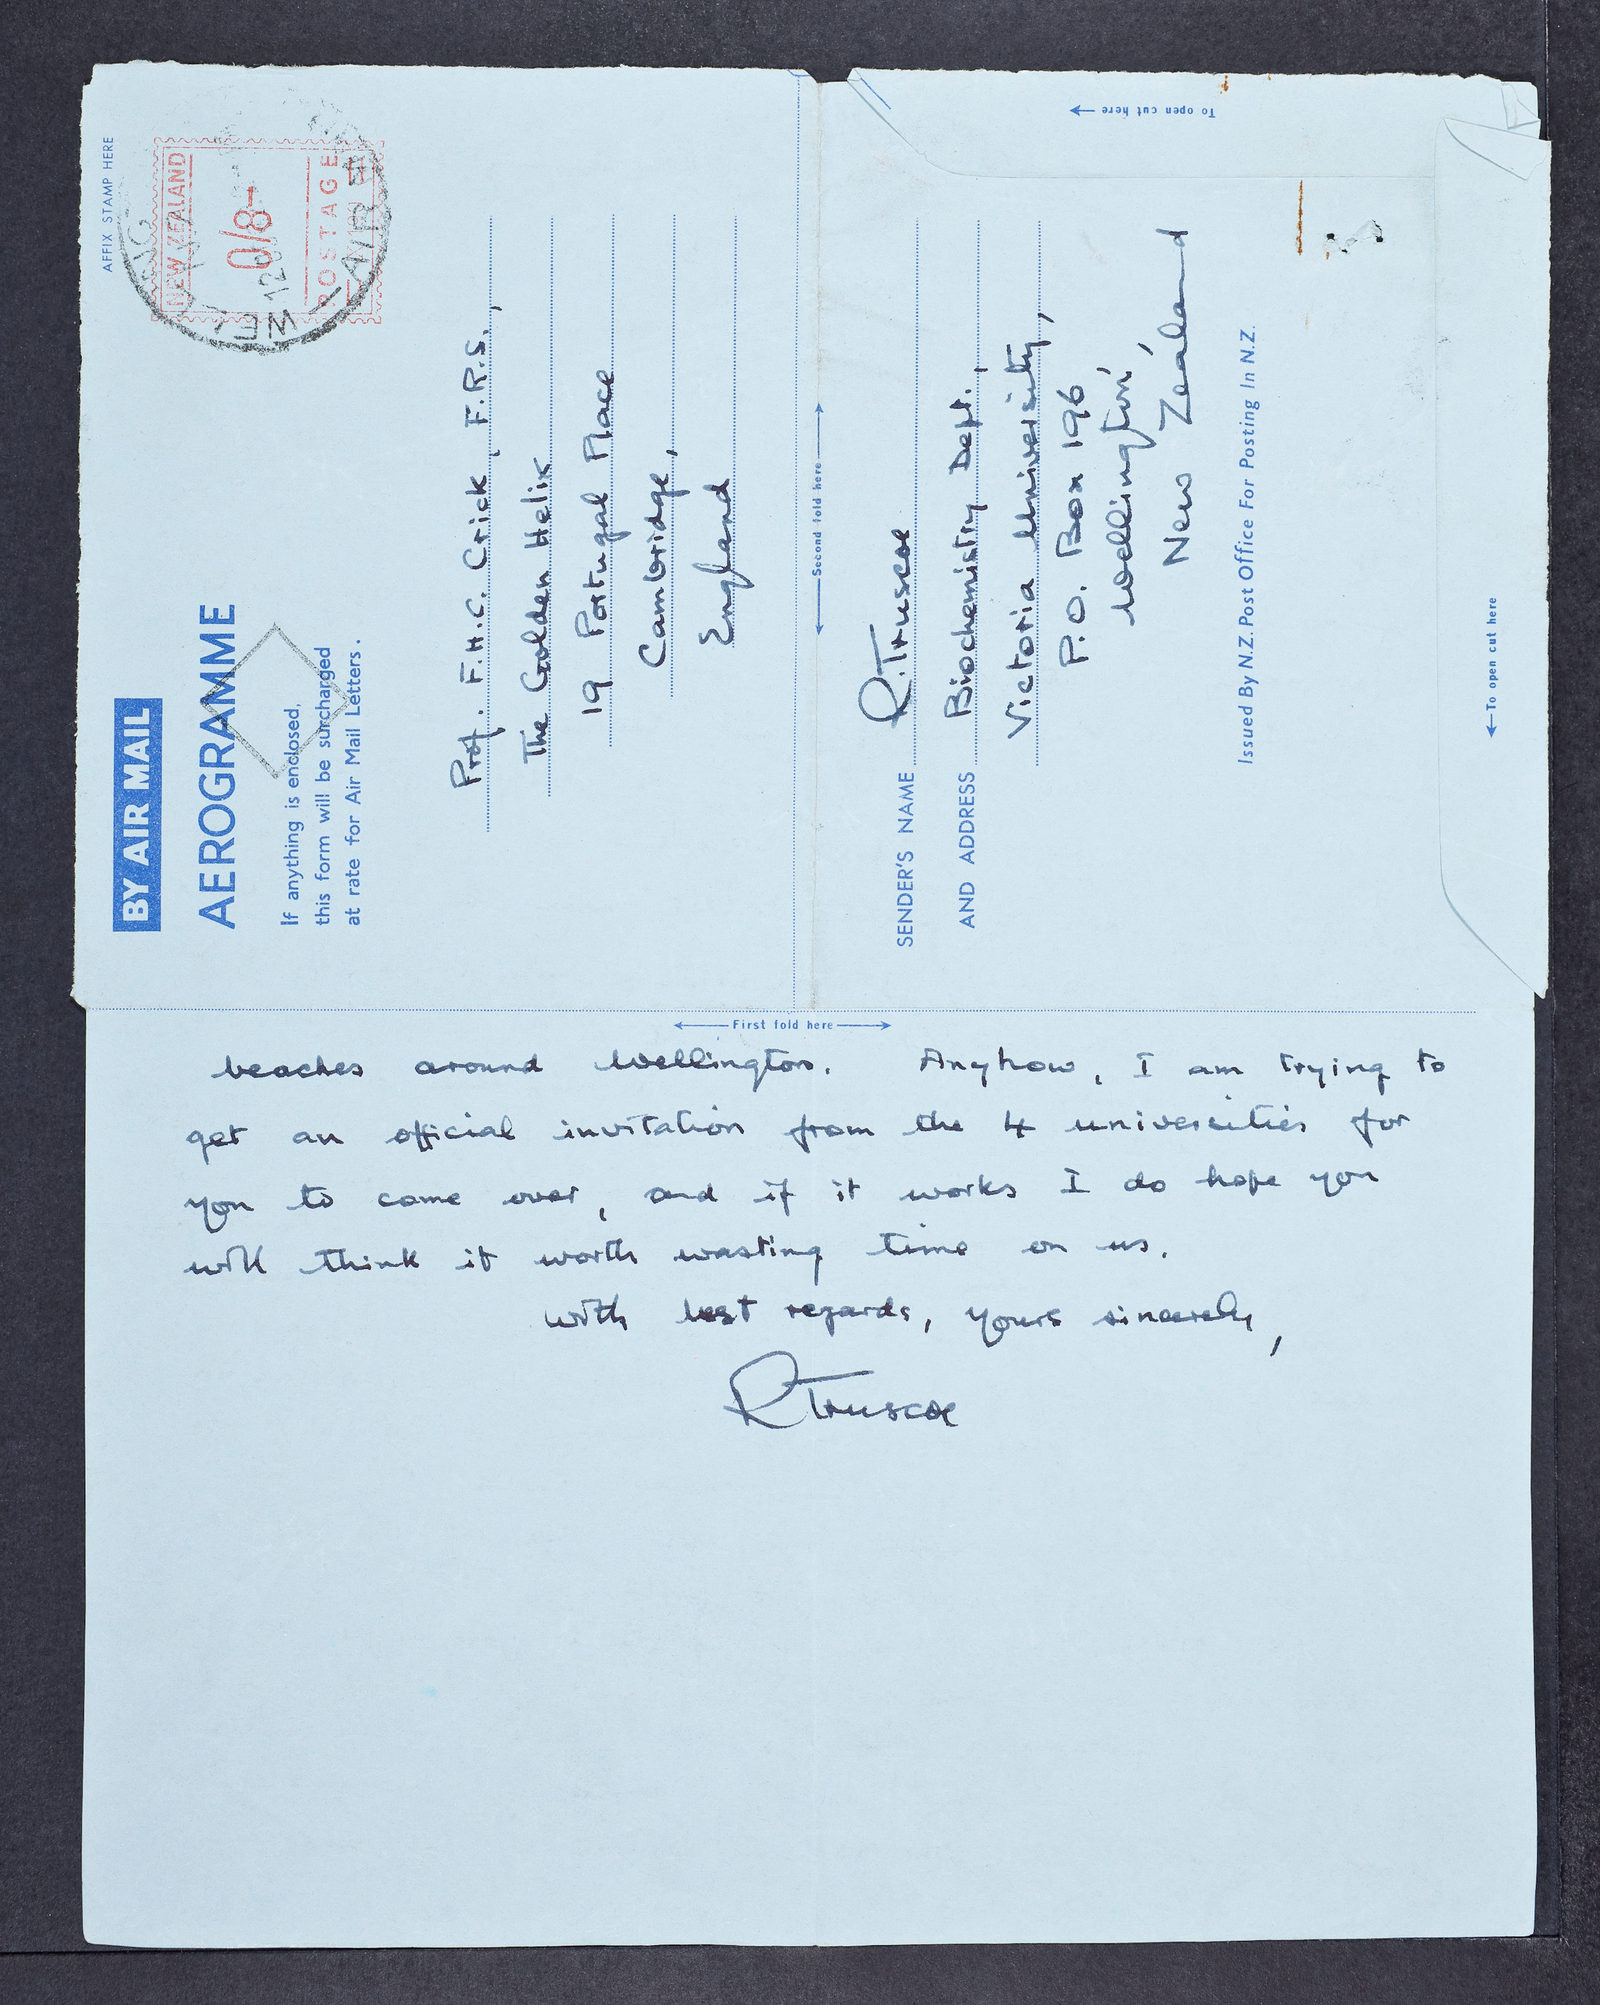 AFFIX STAMP HERE
NEW ZEALAND
0/8-
POSTAGE
BY AIR MAIL
AEROGRAMME
If anything is enclosed,
this form will be surcharged
at rate for Air Mail Letters.
Prof. F.H.C. Crick, F.R.S.,
The Golden Helix
19 Portugal Place
Cambridge,
England
Second fold here
To open cut here
SENDER'S NAME R. Truscoe
AND ADDRESS Biochemistry Dept.,
Victoria University,
P.O. Box 196,
Wellington,
New Zealand
Issued By N.Z. Post Office For Posting In N.Z.
To open cut here
First fold here
beaches around Wellington. Anyhow, I am trying to
get an official invitation from the 4 universities for
you to come over, and if it works I do hope you
will think it worth wasting time on us.
With best regards, yours sincerely,
R Truscoe